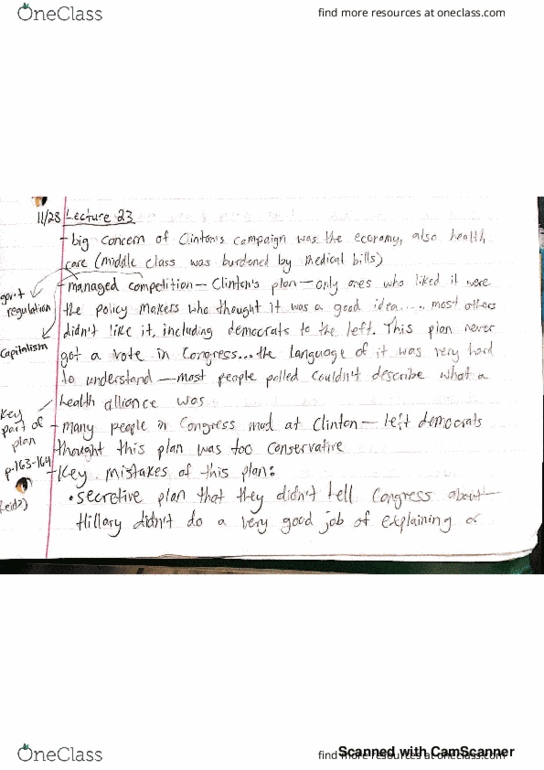 OneClass
find more resources at oneclass.com
11/28 Lecture 23
- big concern of Clinton's campaign was the economy, also health
care (middle class was burdened by medical bills)
- managed competition — Clinton's plan — only ones who liked it were
gov't
regulation
the policy makers who thought it was a good idea..... most others
didn't like it, including democrats to the left. This plan never
Capitalism
got a vote in Congress... the language of it was very hard
to understand — most people polled couldn't describe what a
health alliance was
Key
part of
plan
- many people in Congress mad at Clinton — left democrats
thought this plan was too conservative
p.163-164
- Key mistakes of this plan:
• secretive plan that they didn't tell Congress about —
Hillary didn't do a very good job of explaining or
OneClass
find more resources at oneclass.com
Scanned with CamScanner